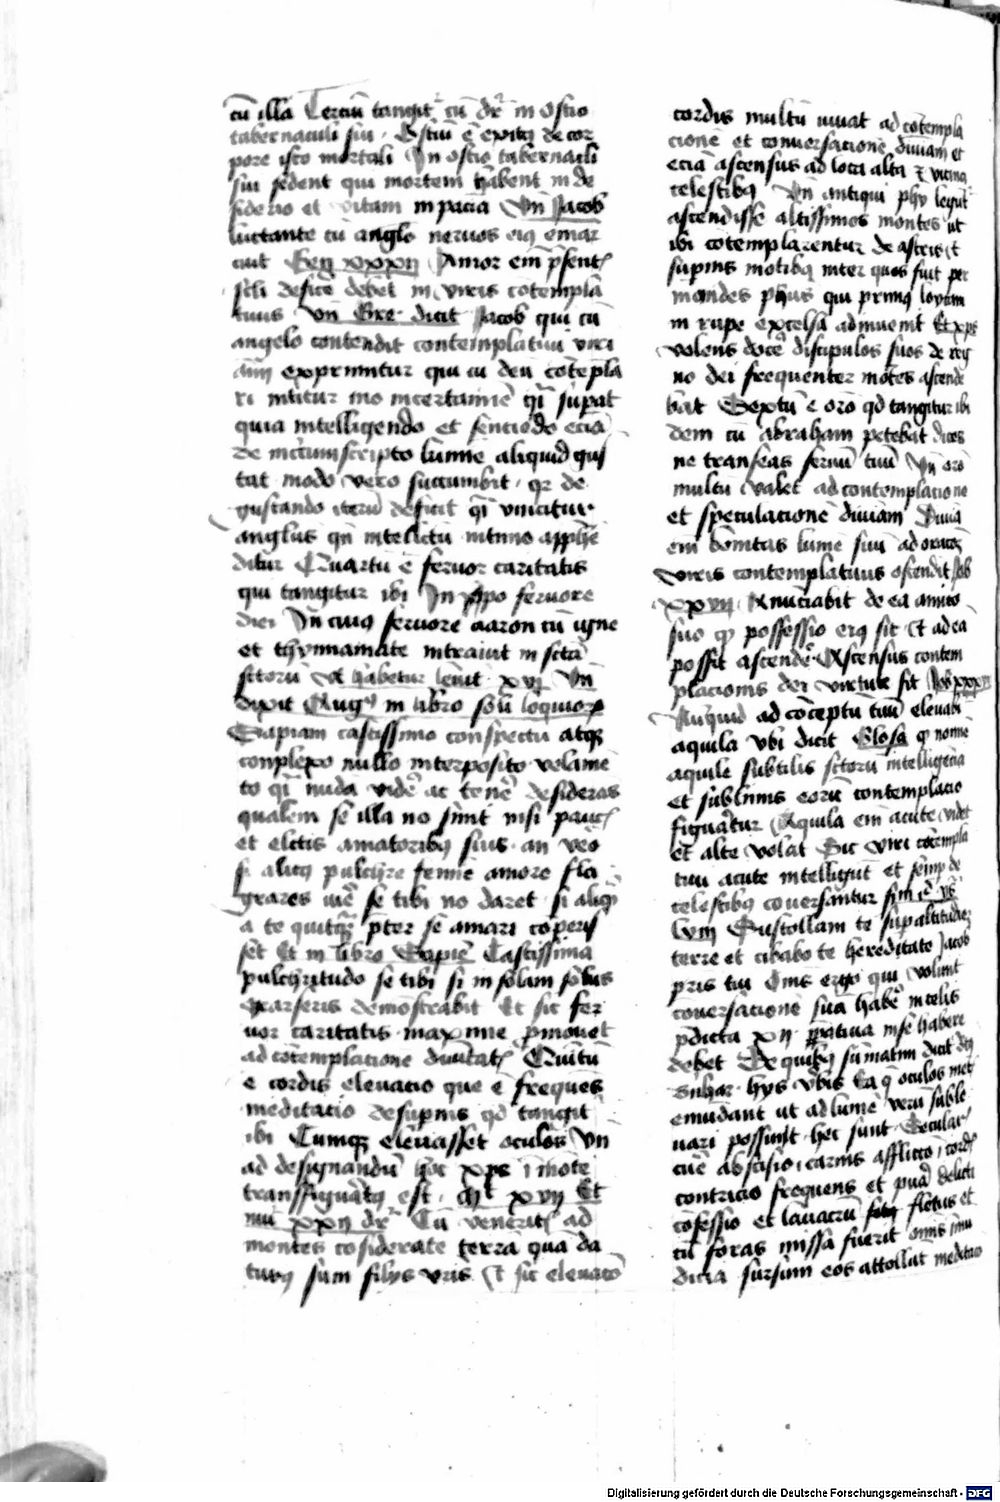 cū illa Terciū tangit᷑ cū dr̄ in ostio
tabernaculi sui · Ostiū ē exitꝰ de cor
pore isto mortali In ostio tabernacli
sui sedent qui mortem habent in de
siderio et vitam in paciā Vn̄ Jacob
luctante cū anglo neruos eiꝰ emar
cuit Geñ xxxij Amor em̄ p̄sent
scli deficē debet in viris cōtempla
tiuis vn̄ Gre dicit Jacob qui cū
angelo contendit contemplatiui viri
aīa exprimitur qui cū deū cōtēpla
ri intitur
quia intelligendo et senciēdo eciā
de incircūscripto lumīe aliquid gus
tat modo vero succumbit · qr de
gustando iterū deficit q̄i vincitur
anglus qn̄ intellectu intimo apphē
ditur Quartū ē feruor caritatis
qui tangitur ibi In ip̄o feruore
diei In cuiꝰ feruore aaron cū igne
et thymiamate intrauit in sctā
sctorū vt habetur leuit · xvj Vn̄
dixit Augꝰ in libro soliloquiorꝝ
Sapiam castissimo conspectu atqꝫ
complexo nullo interposito velamē
to q̄i nudā vidē ac tenē desideras
qualem se illa nō sinit nisi paucꝭ
et elctis amatoribꝰ suis · an vero
si alicꝰ pulchre femīe amore fla
grares iuē se tibi nō daret · si aliqͥd
a te quitqꝫ p̄ter se amari cōperis
set Et in libro Sapiē Castissima
pulchritudo se tibi si in solam
exarseris demōstrabit Et sic fer
uor caritatis maxime p̄mouet
ad cōtemplacione diuītatꝭ Quītū
ē cordis eleuacio que ē frequēs
meditacio de supnis qd tangit᷑
ibi Cumqꝫ eleuasset oculos Vn̄
ad designandū hoc xp̄s ī mōte
transfiguratꝰ est · Mt xvij Et
xxij dr̄ Cū veneritꝭ ad
montes cōsiderate terrā quā da
turꝰ sum filijs vris Et sic eleuacō
cordis multū iuuat ad cōtempla
cionē et conuersacionē diuinam et
eciā ascensus ad loca alta et vicina
celestibꝰ Vn̄ antiqui phi legūt᷑
ascendisse altissimos montes ut
ibi cōtemplarentur de astris et
supnis motibꝰ inter quos fuit per
mandes phus qui primꝰ loycam
in rupe excelsa adinuenit Et xp̄s
volens docē discipulos suos de reg
no dei frequenter mōtes ascende
bat Sextū ē orō qd tangitur ibi
dem cū abraham petebat dices
ne transeas seruū tuū Vn̄ orō
multū valet ad contemplacione
et speculacionē diuinam Diuīa
em̄ bonitas lumē suū ad oracoꝫ
viris contemplatiuis ostendit Job
xxvij Anūciabit de ea amico
suo qꝫ possessio eiꝰ sit Et ad eā
possit ascendē Ascensus contem
placionis dei virtute fit Job xxxix
Nūquid ad cōceptū tuū eleuabit᷑
aquila vbi dicit Glosa qꝫ nomīe
aquile subtilis sctorū intelligēcia
et sublimis eorū contemplacio
figuratur Aquila em̄ acute videt
et alte volat Sic viri cōtempla
tiui acute intelligūt et semp de
celestibꝰ cōuersantur
lviij Sustollam te sup altitudīes
terre et cibabo te hereditate Jacob
pris tui Oms ergo qui volunt
cōuersacionē suā habē in celis
p̄dicta xij p̄paratiua in se habere
debet De quibꝰ sumatim dicit
hijs vbis Ea q̄ oculos mētꝭ
emūdant ut ad lumē verū suble
uari possunt hec sunt · Secular
cure abscisio · carnis afflictio · cordꝭ
contricio frequens et pura delicti
cōfessio et lauacrū fletus et
cū foras missa fuerit omīs imū
dicia sursum eos attollūt meditacio
Digitalisierung gefördert durch die Deutsche Forschungsgemeinschaft - DFG